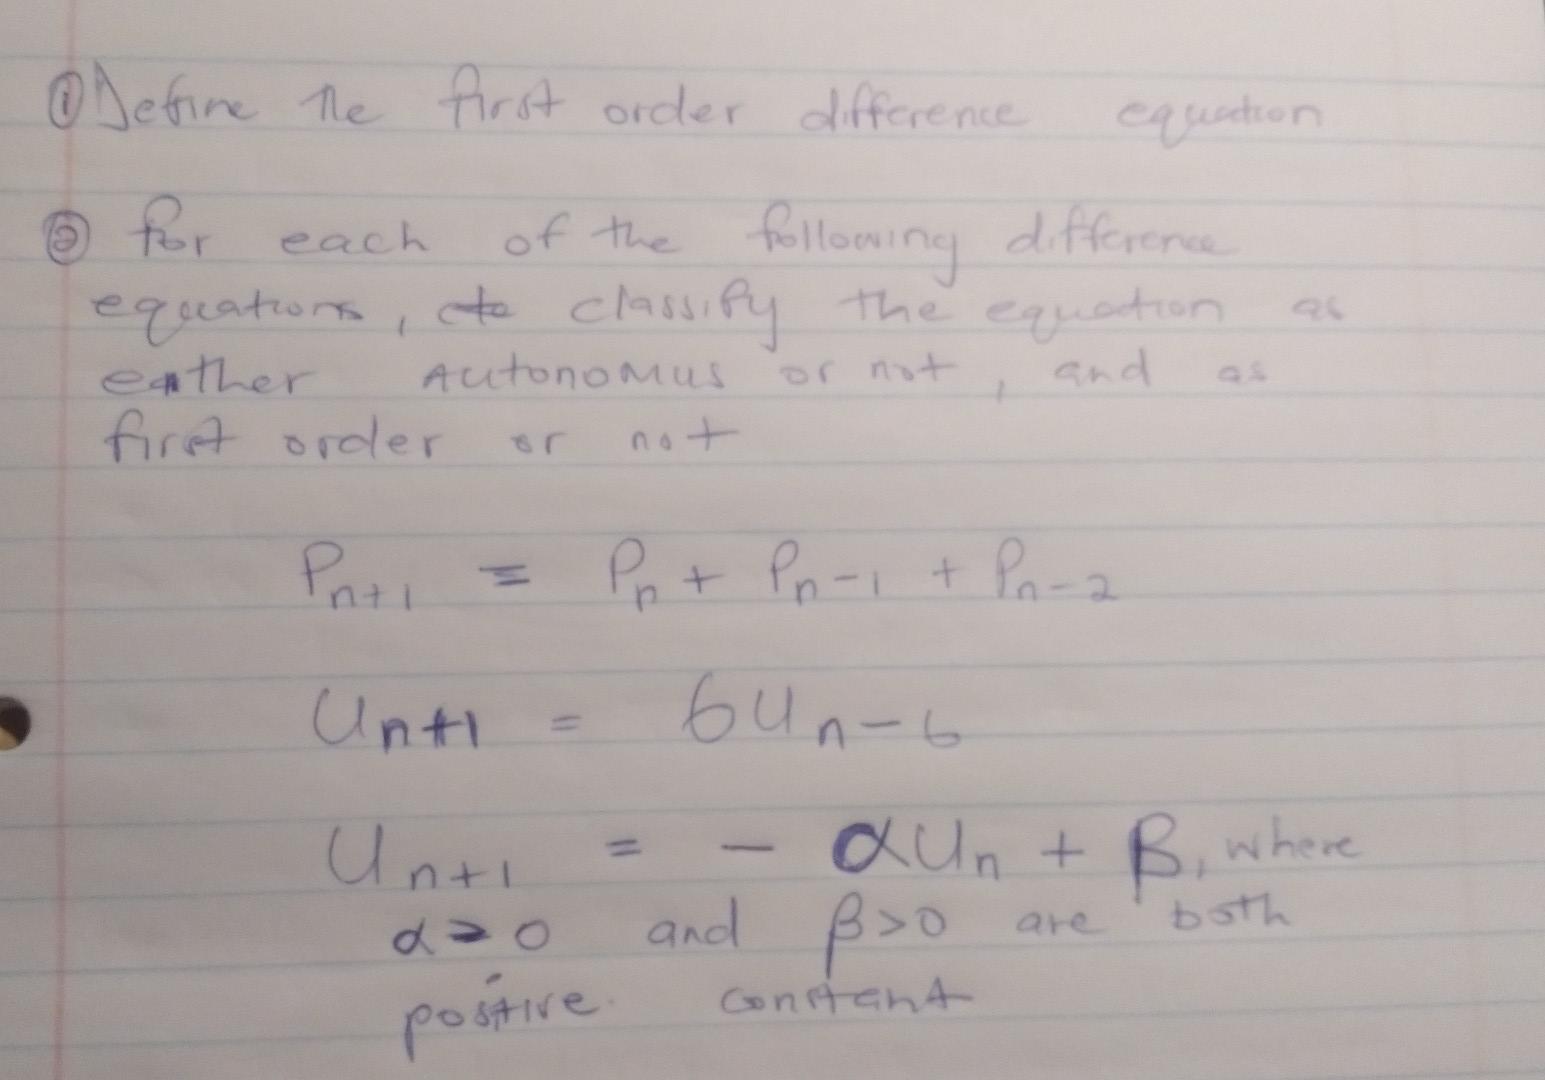 ① Define the first order difference equation
② for each of the following difference
equations, classify the equation as
either AUTONOMUS or not, and as
first order or not
Pn+1 = Pn + Pn-1 + Pn-2
Un+1 = 6Un-6
Un+1 = - αUn + β, where
α > 0 and β>0 are both
positive constant